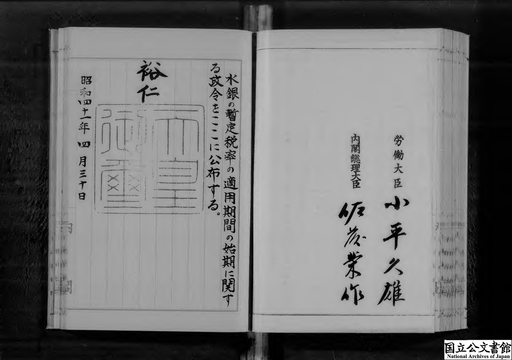 労働大臣 小平久雄
内閣総理大臣 佐藤栄作
水銀の暫定税率の適用期間の始期に関す
る政令をここに公布する。
裕仁
天皇御璽
昭和四十一年四月三十日
国立公文書館
National Archives of Japan